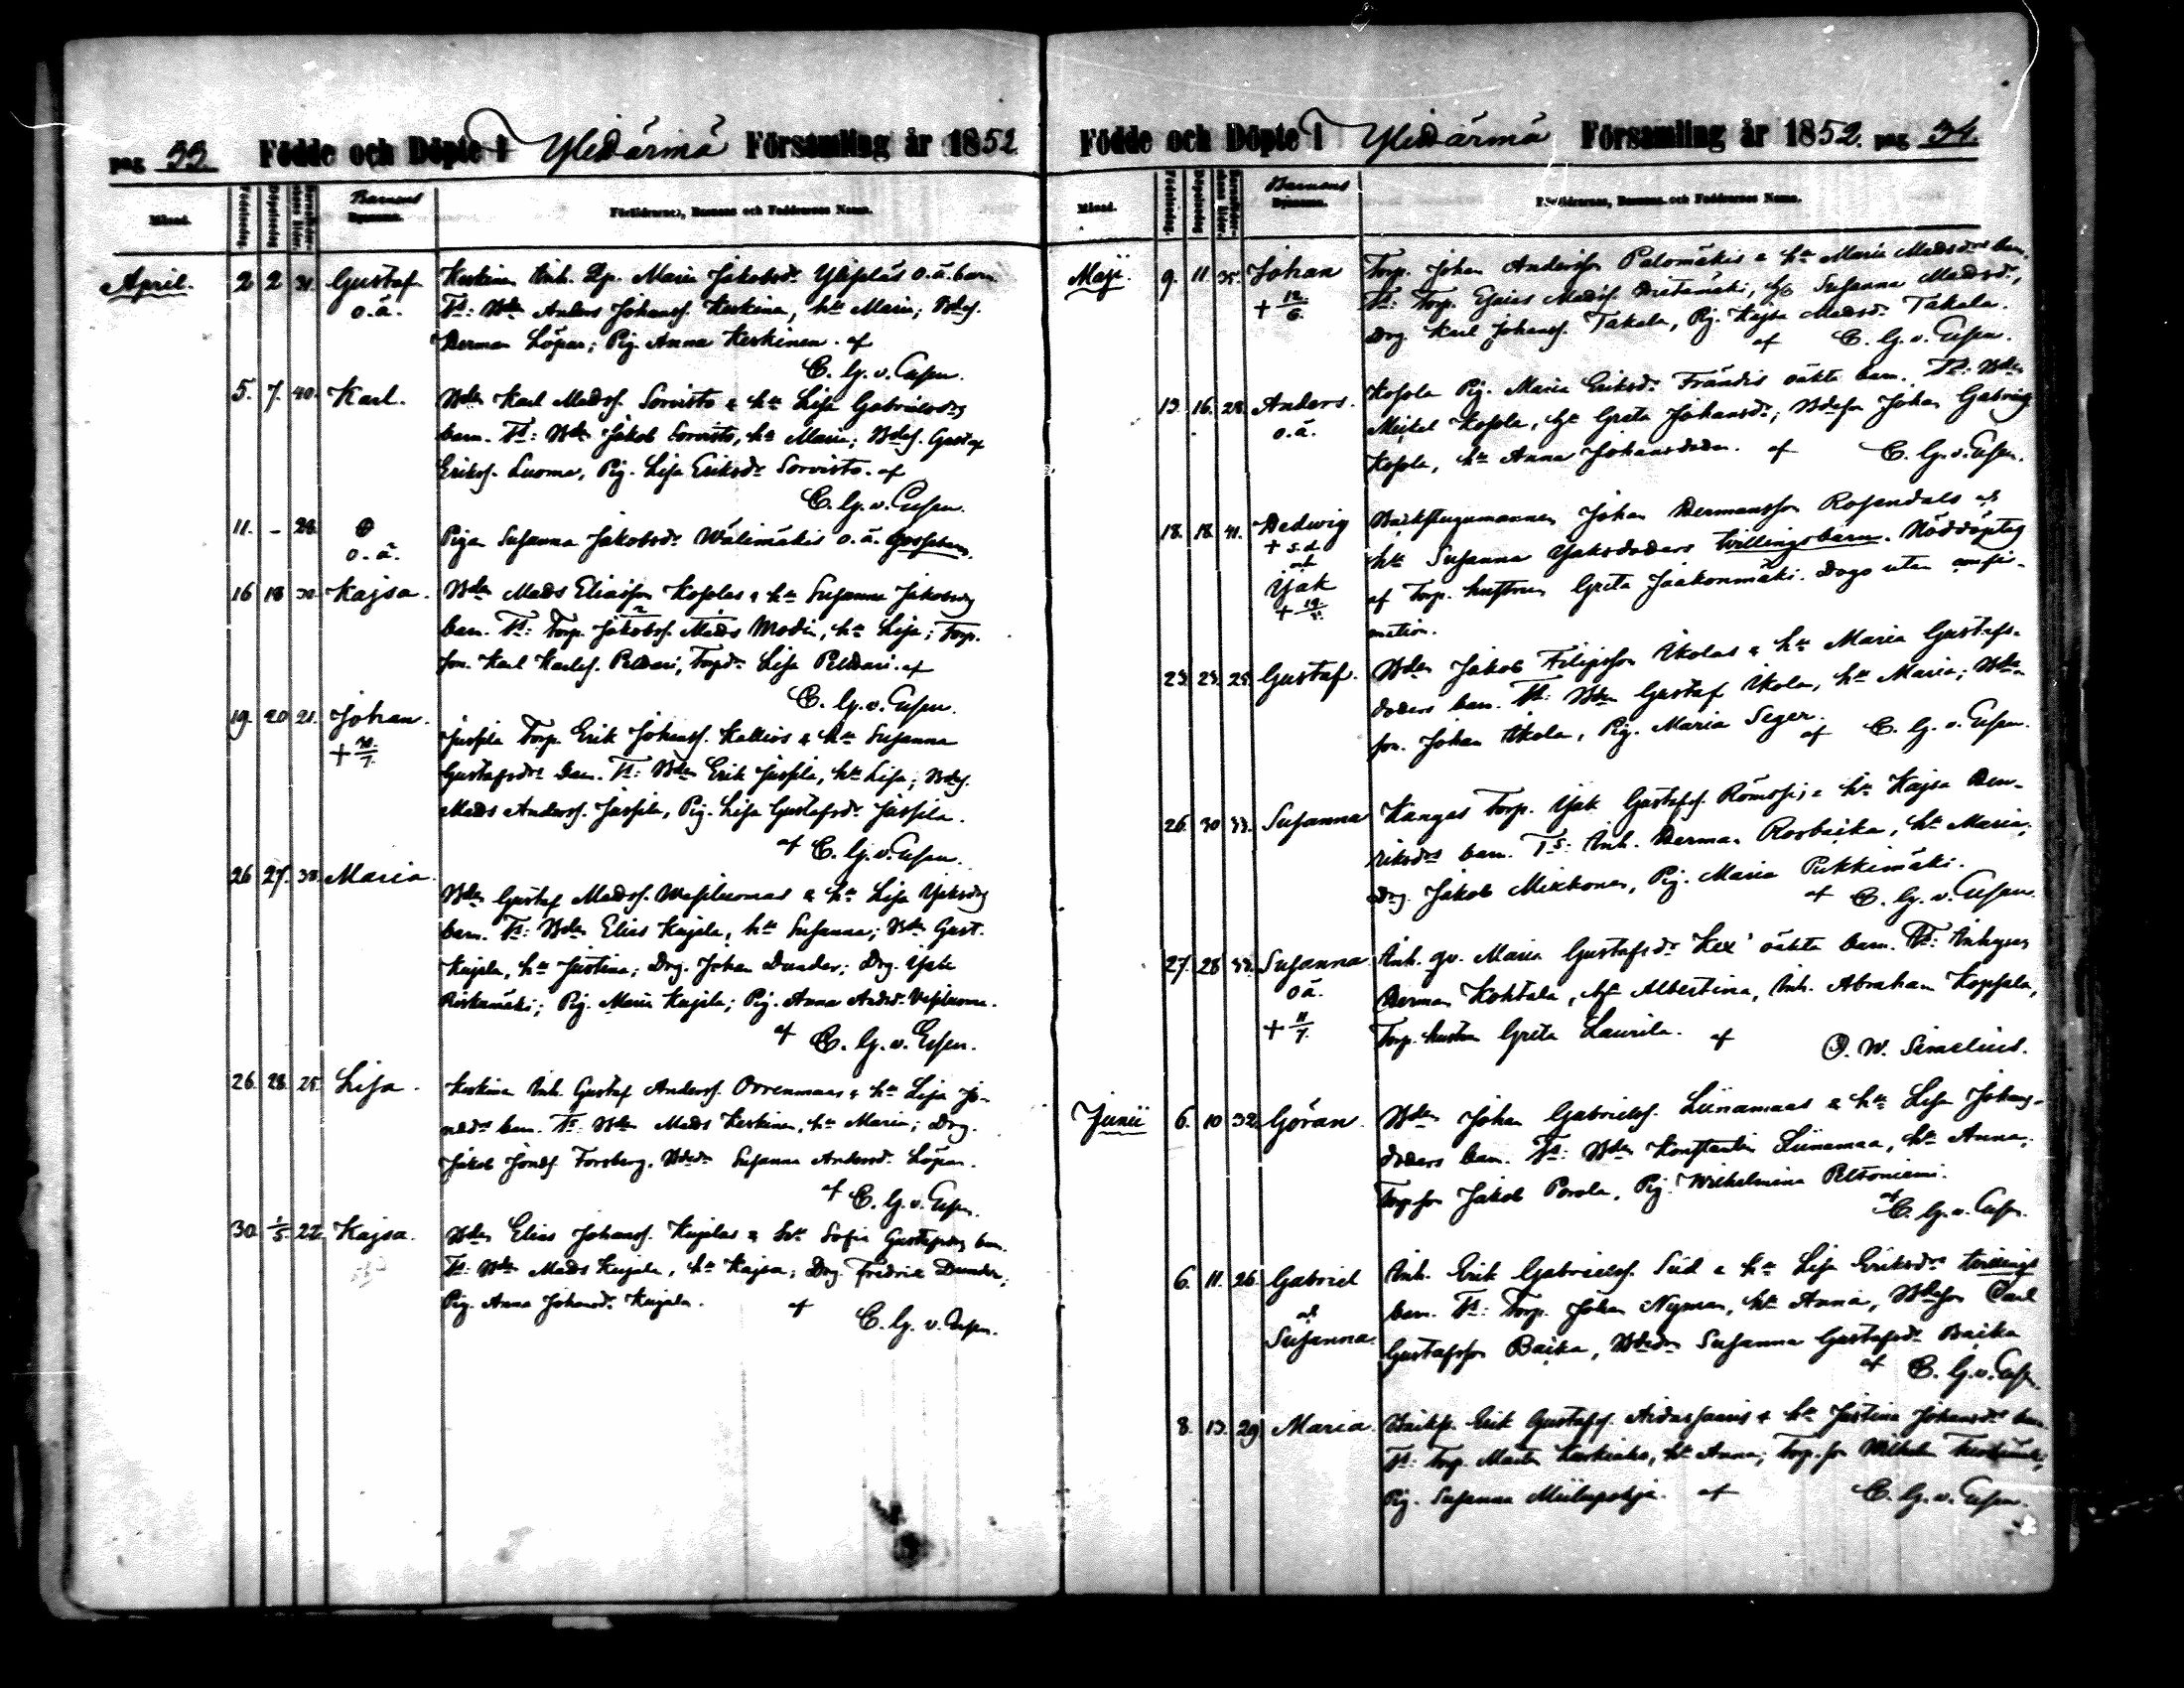 pag 33. Födde och Döpte i Ylihärmä Församling år 1852
Månad. Födelsedag. Döpelsedag. Barnens Föräldrarnes, Barnens och Faddrarnes Namn.
April. 2 2 31. Gustaf Keskinen Inh. Maria Jakobsdr. o.ä. barn.
o.ä. Ts: Bdn Anders Johanss. Keskinen, hu Maria; Bdes.
Herman Löpar; Pig. Anna Keskinen. af
C. G. v. Essen.
5. 7. 40. Karl. Bdn Karl Madss. Sorvisto & hu Lisa Gabrielsdrs
barn. Ts: Bdn Jakob Sorvisto, hu Maria; Bdes. Gustaf
Erikss. Luoma, Pig. Lisa Eriksdr Sorvisto. af
C. G. v. Essen.
11. - 28. o.ä. Pigan Susanna Jakobsdr. Wälimäkis o.ä. gossebarn.
16 18 30. Kajsa. Bdn Mads Eliasson Kosolas & hu Susanna Jakobsdrs
barn. Ts: Torp. Jakobss. Mads Modin, hu Lisa; Torp.
son. Karl Karlss. Peldari, Torpdr. Lisa Peldari. af
C. G. v. Essen.
19. 20 21. Johan. Jussila Torp. Erik Johanss. Kallios & hu Susanna
+ 30/7. Gustafsdrs barn. Ts: Bdn Erik Jussila, hu Lisa; Bdes.
Mads Anderss. Jussila, Pig. Lisa Gustafsdr. Jussila.
af C. G. v. Essen.
26 27. 38. Maria. Bdn Gustaf Madss. & hu Lisa Isaksdrs
barn. Ts: Bdn Elias Kujala, hu Susanna; Bdn Gust.
Kujala, hu Justina; Drg. Johan Dunder; Drg. Isak
Pig. Maria Kujala; Pig. Anna Andsdr.
af C. G. v. Essen.
26. 28. 25. Lisa. Keskinen Inh. Gustaf Anderss. Orrenmaas & hu Lisa Jo-
nasdrs barn. Ts: Bdn Mads Keskinen, hu Maria; Drg.
Jakob Jonass. Forsberg, Bdedr Susanna Andersdr. Löpar.
af C. G. v. Essen.
30. 1/5. 22. Kajsa. Bdn Elias Johanss. Kujalas & hu Sofia Gustafsdrs barn.
Ts: Bdn Mads Kujala, hu Kajsa; Drg. Fredrik Dunder,
Pig. Anna Johansdr. Kujala. af
C. G. v. Essen.
Födde och Döpte i Ylihärmä Församling år 1852. pag 34.
Månad. Födelsedag. Döpelsedag Barnens Föräldrarnes, Barnens och Faddrarnes Namn.
Maji. 9. 11. 35. Johan Torp. Johan Andersson Palomäkis & hu Maria Madsdrs barn.
+ 12/6. Ts: Torp. Esaias Madss. Hietamäki, hu Susanna Madsdr,
Drg. Karl Johanss. Takala, Pig. Kajsa Madsdr. Takala.
af C. G. v. Essen.
13. 16. 28. Anders. Kosola Pig. Maria Eriksdr. Frändis oäkta barn. Ts: Bdn
o.ä. Mickel Kosola, hu Greta Johansdr; Bdeson Johan Gabriels
Kosola, hu Anna Johansdoter. af C. G. v. Essen.
18. 18. 41. Hedwig Backstugumannen Johan Hermansson Rosendals och
+ s.d. hu Susanna Isaksdoters twillingsbarn. Nöddöptes
och Isak af Torp. hustrun Greta Jaakonmäki. Dogo utan confir-
+ 19/5. mation.
23. 23. 25. Gustaf. Bdn Jakob Filipsson Ikolas & hu Maria Gustafs-
doters barn. Ts: Bdn Gustaf Ikola, hu Maria; Bde-
son. Johan Ikola, Pig. Maria Seger. af C. G. v. Essen.
26. 30 33. Susanna Kangas Torp. Isak Gustafss. & hu Kajsa Hen-
riksdrs barn. Ts: Inh. Herman Rosbacka, hu Maria;
Drg. Jakob Mickonen, Pig. Maria Pukkimäki.
af C. G. v. Essen.
27. 28 33. Susanna. Inh. qv. Maria Gustafsdr. Kex' oäkta barn. Ts: Inhyses
o.ä. Herman Kohtala, hu Albertina, Inh. Abraham Kopsala,
+ 11/7. Torp. hustrun Greta Laurila. af O. W. Simelius.
Junii 6. 10 32. Göran. Bdn Johan Gabrielss. Liinamaas & hu Lisa Johans-
doters barn. Ts: Bdn Konstantin Liinamaa, hu Anna;
Torpson Jakob Porola, Pig. Wilhelmina Peltoniemi.
af C. G. v. Essen.
6. 11. 26. Gabriel Inh. Erik Gabrielss. Sid & hu Lisa Eriksdrs twillings
och barn. Ts: Torp. Johan Nyman, hu Anna, Bdeson Carl
Susanna. Gustafsson Backa, Bdedr Susanna Gustafsdr. Backa
af C. G. v. Essen.
8. 13. 29 Maria. Backst. Erik Gustafss. & hu Justina Johansdrs barn
Ts: Torp. Matts hu Anna; Torp. son Wilhelm
Pig. Susanna Miilupohja. af C. G. v. Essen.